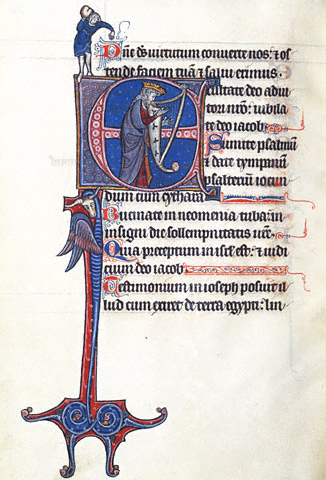 Dñe ds uirtutum conuerte nos: & os
tende faciem tuā & salui erimus.
Exultate deo adiu
tori nrō: iubila
te deo iacob
Sumite psalmū
& date tympanū
psalteriū iocun
dum cum cythara
Bucinate in neomenia tuba: in
insigni die sollempnitatis urē
Quia preceptum in isrl est: & iudi
cium deo iacob
Testimonium in ioseph posuit il
lud cum exiret de terra egypti: lin